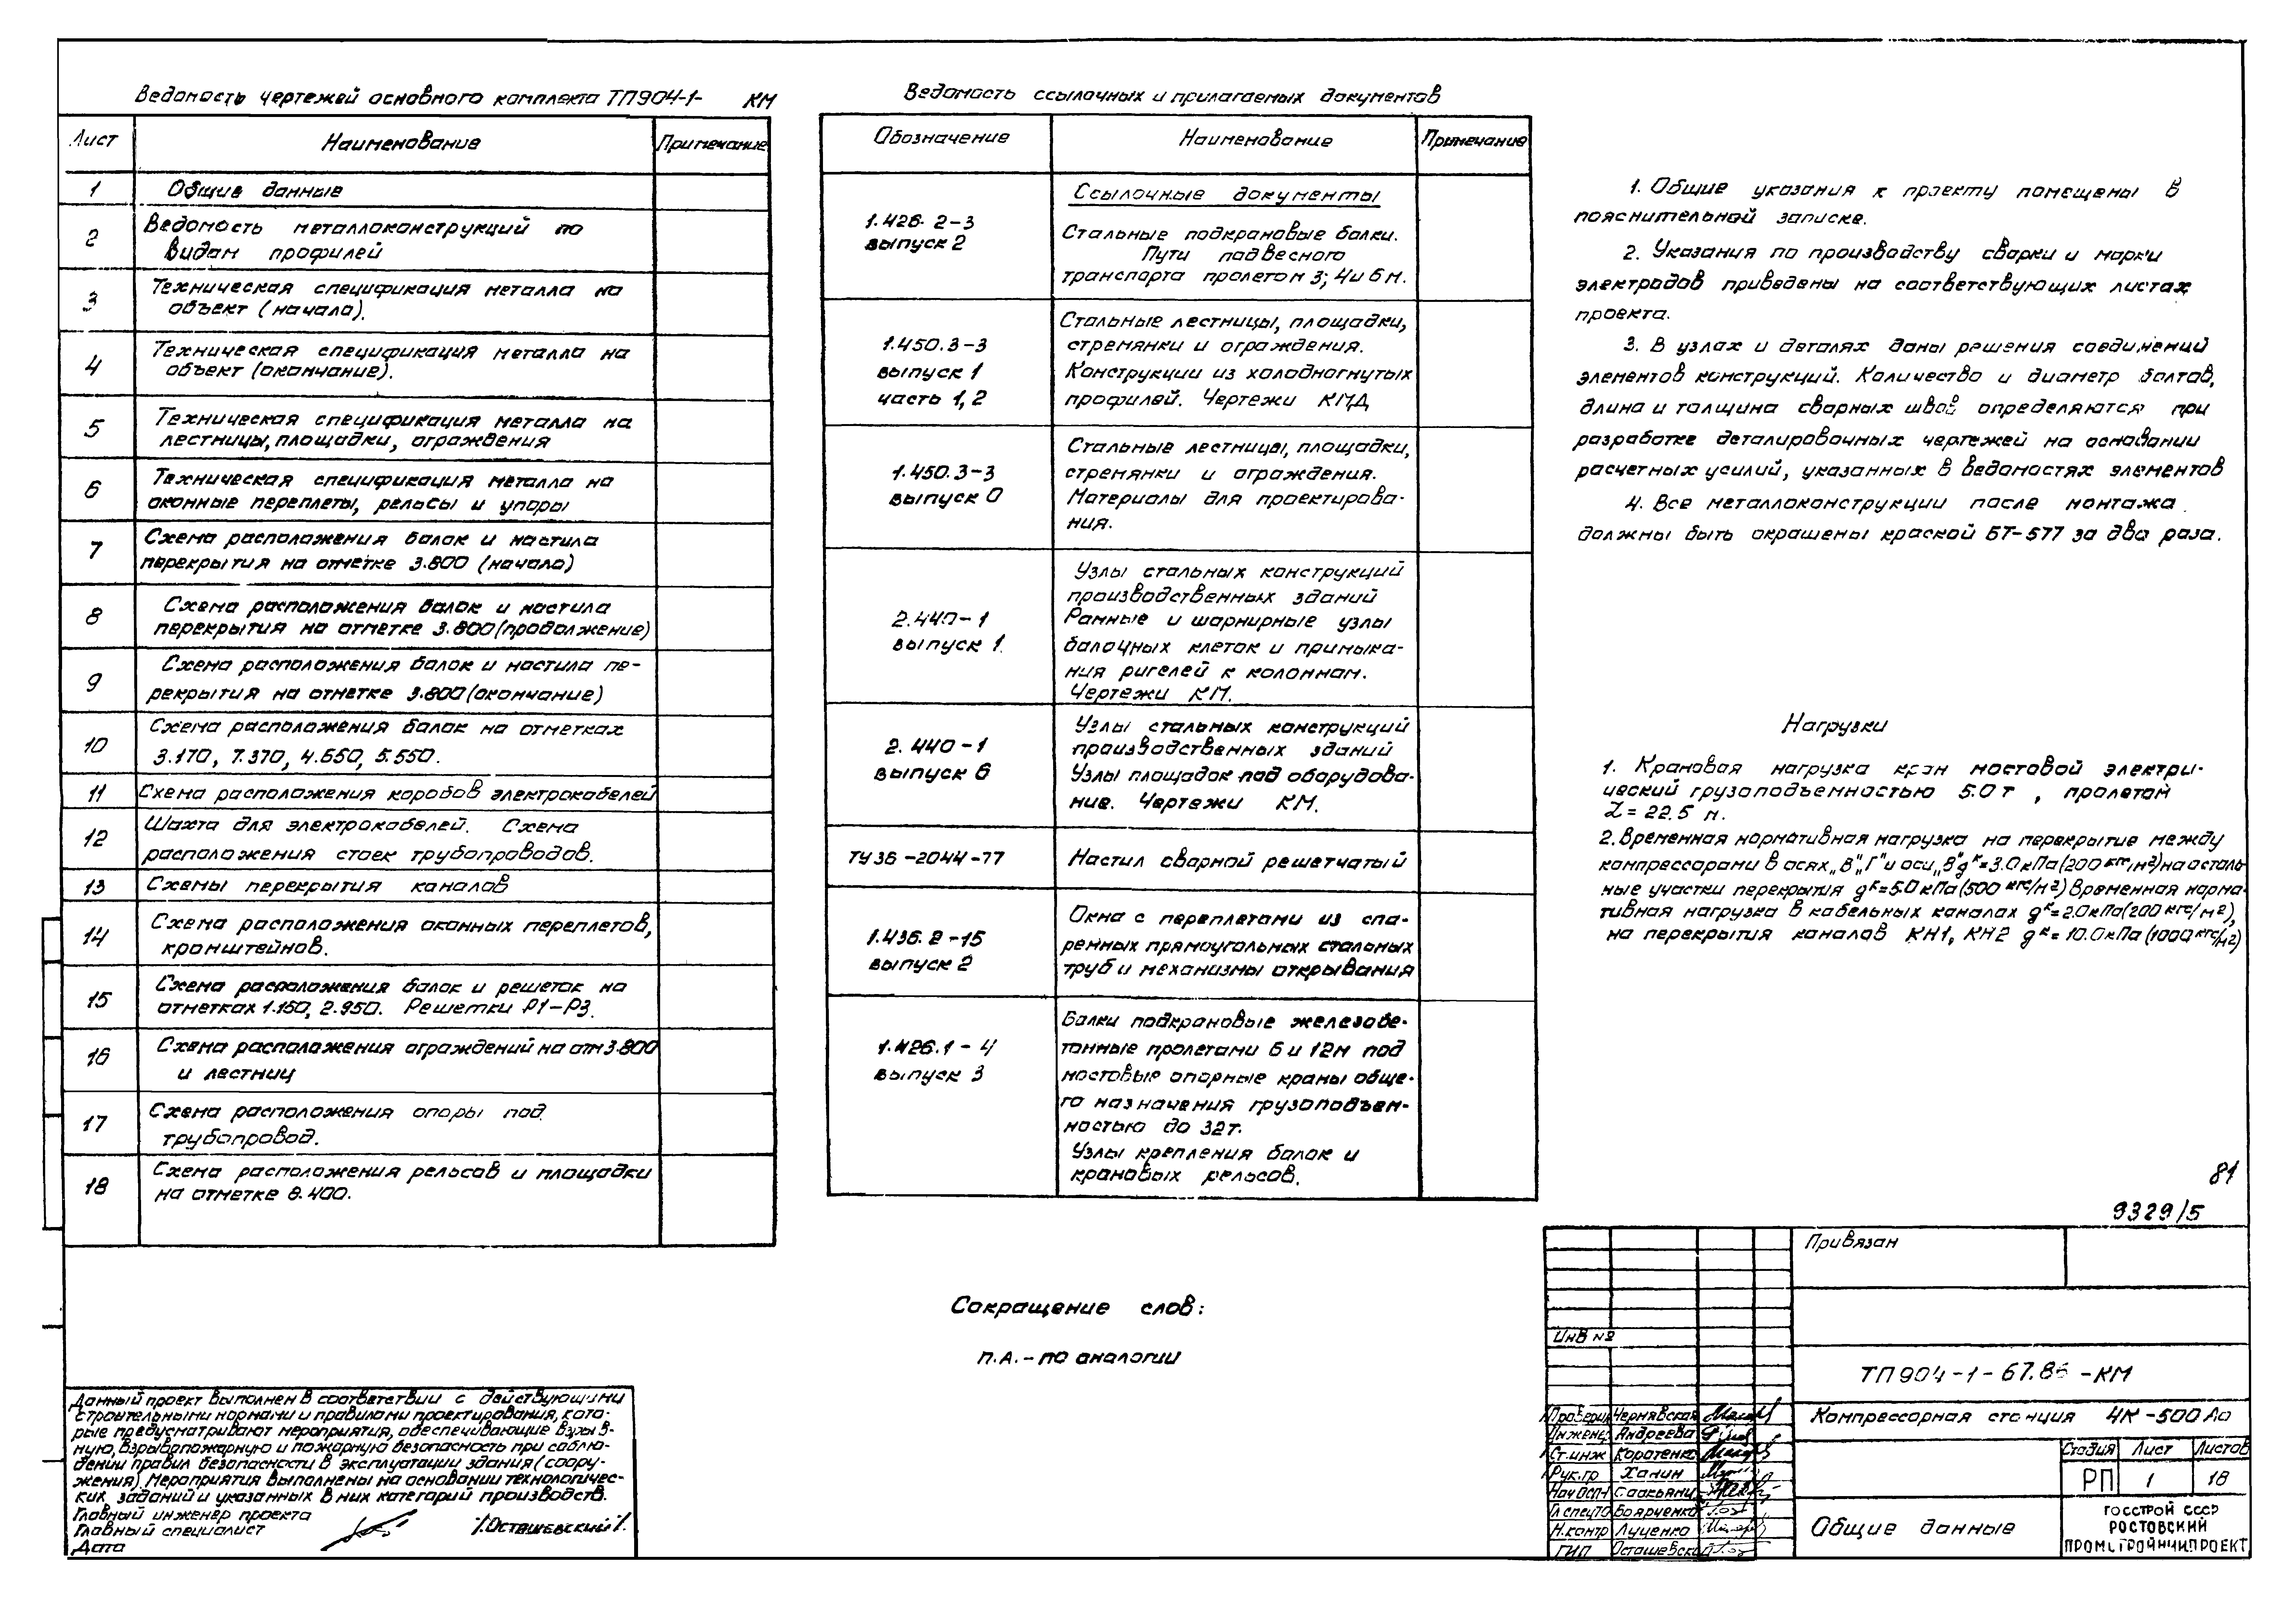 Ведомость чертежей основного комплекта ТП904-1- КМ
Лист Наименование Примечание
1 Общие данные
2 Ведомость металлоконструкций по
видам профилей
3 Техническая спецификация металла на
объект (начало).
4 Техническая спецификация металла на
объект (окончание).
5 Техническая спецификация металла на
лестницы, площадки, ограждения
6 Техническая спецификация металла на
оконные переплеты, рельсы и упоры
7 Схема расположения балок и настила
перекрытия на отметке 3.800 (начало)
8 Схема расположения балок и настила
перекрытия на отметке 3.800 (продолжение)
9 Схема расположения балок и настила пе-
рекрытия на отметке 3.800 (окончание)
10 Схема расположения балок на отметках
3.170, 7.370, 4.650, 5.550.
11 Схема расположения коробов электрокабелей
12 Шахта для электрокабелей. Схема
расположения стоек трубопроводов.
13 Схемы перекрытия каналов
14 Схема расположения оконных переплетов,
кронштейнов.
15 Схема расположения балок и решеток на
отметках 1.150, 2.950. Решетки Р1-Р3.
16 Схема расположения ограждений на отм 3.800
и лестниц
17 Схема расположения опоры под
трубопровод.
18 Схема расположения рельсов и площадки
на отметке 8.400.
Ведомость ссылочных и прилагаемых документов
Обозначение Наименование Примечание
Ссылочные документы
1.426.2-3
выпуск 2
Стальные подкрановые балки.
Пути подвесного
транспорта пролетом 3; 4 и 6 м.
1.450.3-3
выпуск 1
часть 1, 2
Стальные лестницы, площадки,
стремянки и ограждения.
Конструкции из холодногнутых
профилей. Чертежи КМД
1.450.3-3
выпуск 0
Стальные лестницы, площадки,
стремянки и ограждения.
Материалы для проектирова-
ния.
2.440-1
выпуск 1
Узлы стальных конструкций
производственных зданий
Рамные и шарнирные узлы
балочных клеток и примыка-
ния ригелей к колоннам.
Чертежи КМ.
2.440-1
выпуск 6
Узлы стальных конструкций
производственных зданий
Узлы площадок под оборудова-
ние. Чертежи КМ.
ТУ36-2044-77 Настил сварной решетчатый
1.436.2-15
выпуск 2
Окна с переплетами из спа-
ренных прямоугольных стальных
труб и механизмы открывания
1.426.1-4
выпуск 3
Балки подкрановые железобе-
тонные пролетами 6 и 12м под
мостовые опорные краны обще-
го назначения грузоподъем-
ностью до 32т.
Узлы крепления балок и
крановых рельсов.
Сокращение слов:
п.А. - по аналогии
1. Общие указания к проекту помещены в
пояснительной записке.
2. Указания по производству сварки и марки
электродов приведены на соответствующих листах
проекта.
3. В узлах и деталях даны решения соединений
элементов конструкций. Количество и диаметр болтов,
длина и толщина сварных швов определяются при
разработке деталировочных чертежей на основании
расчетных усилий, указанных в ведомостях элементов
4. Все металлоконструкции после монтажа
должны быть окрашены краской БТ-577 за два раза.
Нагрузки
1. Крановая нагрузка кран мостовой электри-
ческий грузоподъемностью 5.0 т, пролетом
L = 22.5 м.
2. Временная нормативная нагрузка на перекрытие между
компрессорами в осях „В", „Г" и оси „В" gк=3.0 кПа (200 кгс/м2) на осталь-
ные участки перекрытия gк=5.0 кПа (500 кгс/м2) Временная норма-
тивная нагрузка в кабельных каналах gк=2.0 кПа (200 кгс/м2),
на перекрытия каналов КН1, КН2 gк=10.0 кПа (1000 кгс/м2)
81
9329/5
Привязан
Инв №
ТП904-1-67.86-КМ
Проверил Чернявская
Инженер Андреева
Ст.инж Коротенко
Рук.гр Ханин
Нач ОСП-1 Саакьянц
Гл спец ТО Боярченко
Н.контр Луценко
ГИП Осташевский
Компрессорная станция 4К-500Ао
Стадия Лист Листов
РП 1 18
Общие данные
ГОССТРОЙ СССР
РОСТОВСКИЙ
ПРОМСТРОЙНИИПРОЕКТ
Данный проект выполнен в соответствии с действующими
строительными нормами и правилами проектирования, кото-
рые предусматривают мероприятия, обеспечивающие взрыв-
ную, взрывопожарную и пожарную безопасность при соблю-
дении правил безопасности в эксплуатации здания (соору-
жения). Мероприятия выполнены на основании технологичес-
ких заданий и указанных в них категорий производств.
Главный инженер проекта
Главный специалист /Осташевский/.
Дата